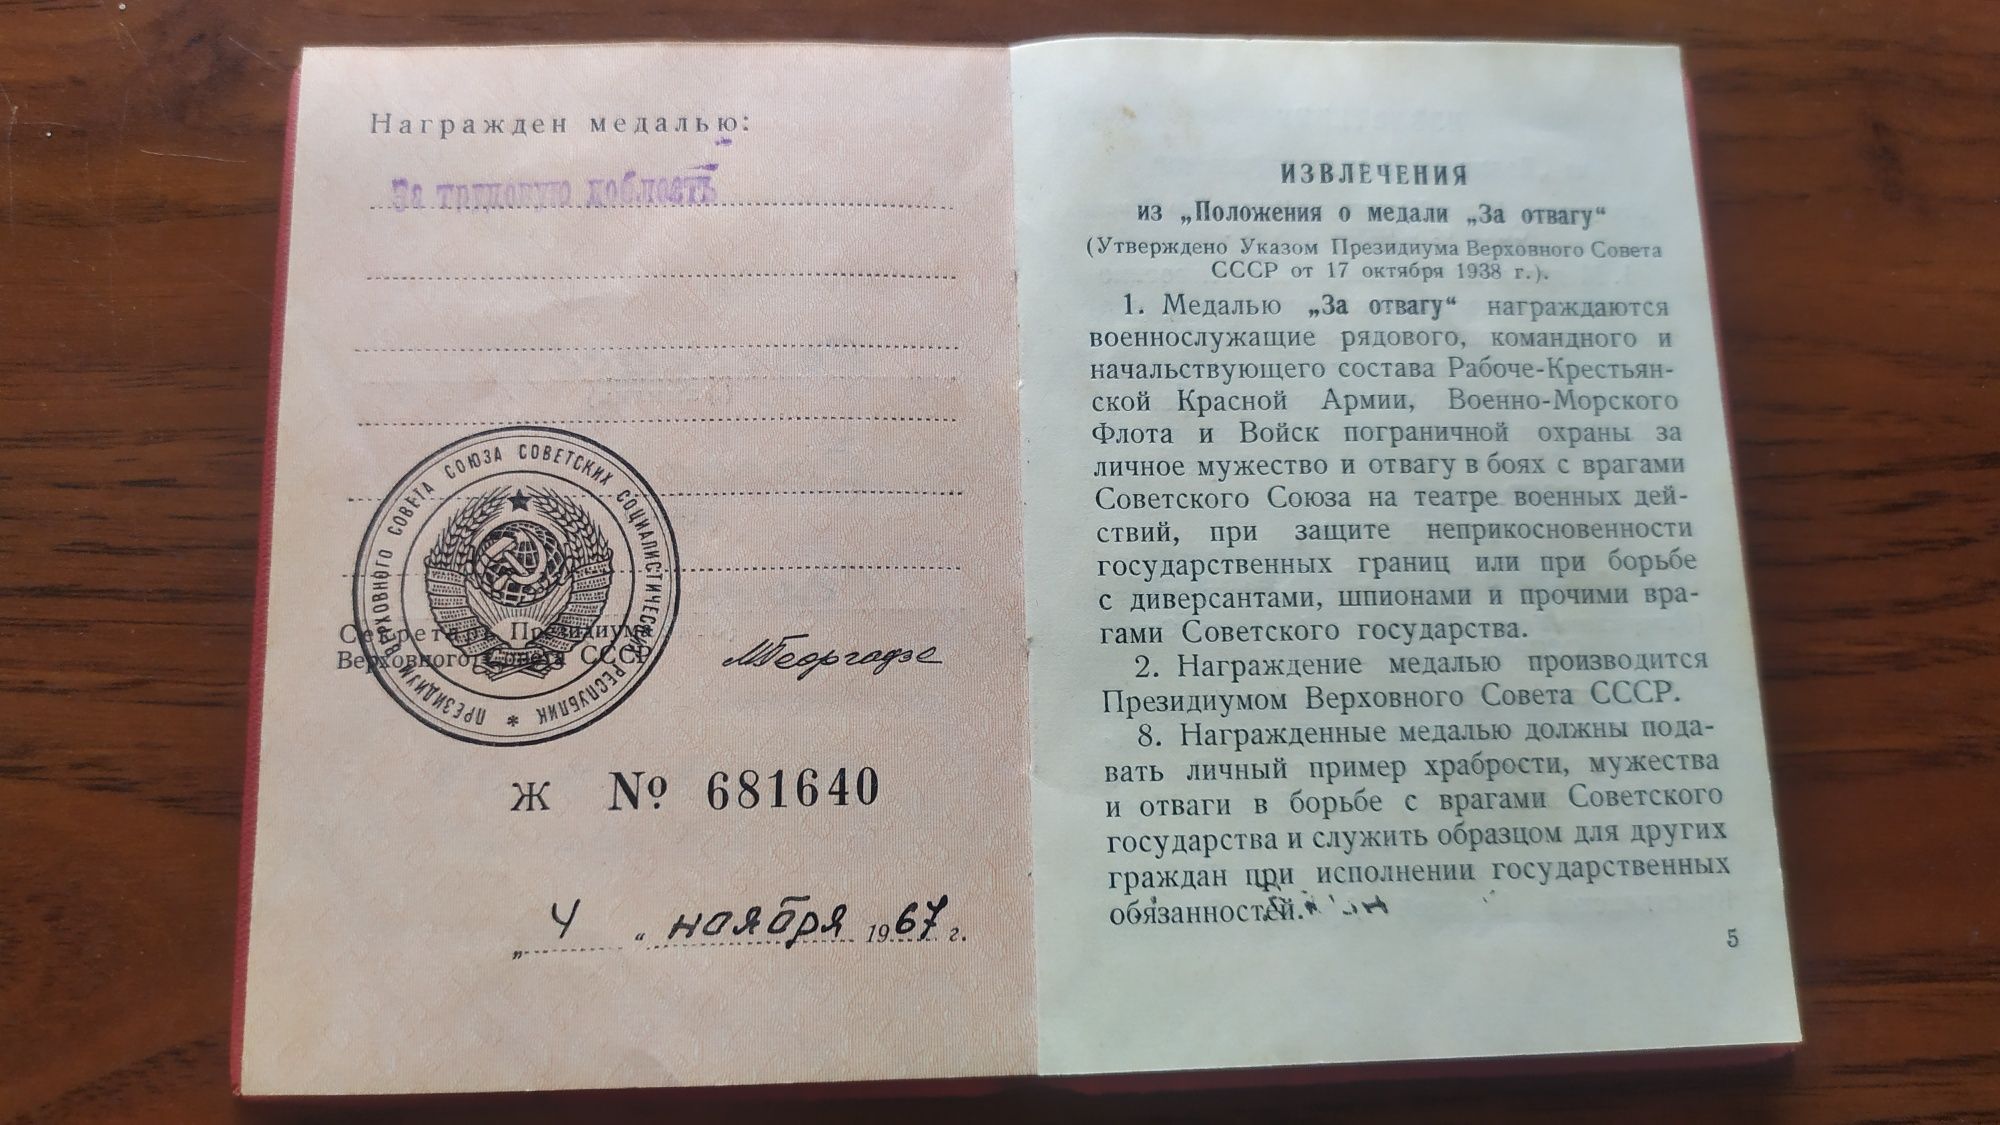 Награжден медалью:
За трудовую доблесть
ПРЕЗИДИУМ ВЕРХОВНОГО СОВЕТА СОЮЗА СОВЕТСКИХ СОЦИАЛИСТИЧЕСКИХ РЕСПУБЛИК *
Секретарь Президиума
Верховного Совета СССР
МГеоргадзе
Ж № 681640
„4“ ноября 1967 г.
ИЗВЛЕЧЕНИЯ
из „Положения о медали „За отвагу“
(Утверждено Указом Президиума Верховного Совета
СССР от 17 октября 1938 г.).
1. Медалью „За отвагу“ награждаются
военнослужащие рядового, командного и
начальствующего состава Рабоче-Крестьян-
ской Красной Армии, Военно-Морского
Флота и Войск пограничной охраны за
личное мужество и отвагу в боях с врагами
Советского Союза на театре военных дей-
ствий, при защите неприкосновенности
государственных границ или при борьбе
с диверсантами, шпионами и прочими вра-
гами Советского государства.
2. Награждение медалью производится
Президиумом Верховного Совета СССР.
8. Награжденные медалью должны пода-
вать личный пример храбрости, мужества
и отваги в борьбе с врагами Советского
государства и служить образцом для других
граждан при исполнении государственных
обязанностей.
5